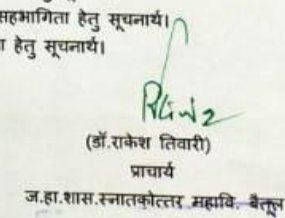 सहभागिता हेतु सूचनार्थ।
हेतु सूचनार्थ।
(डॉ.राकेश तिवारी)
प्राचार्य
ज.हा.शास.स्नातकोत्तर महावि. बैतूल